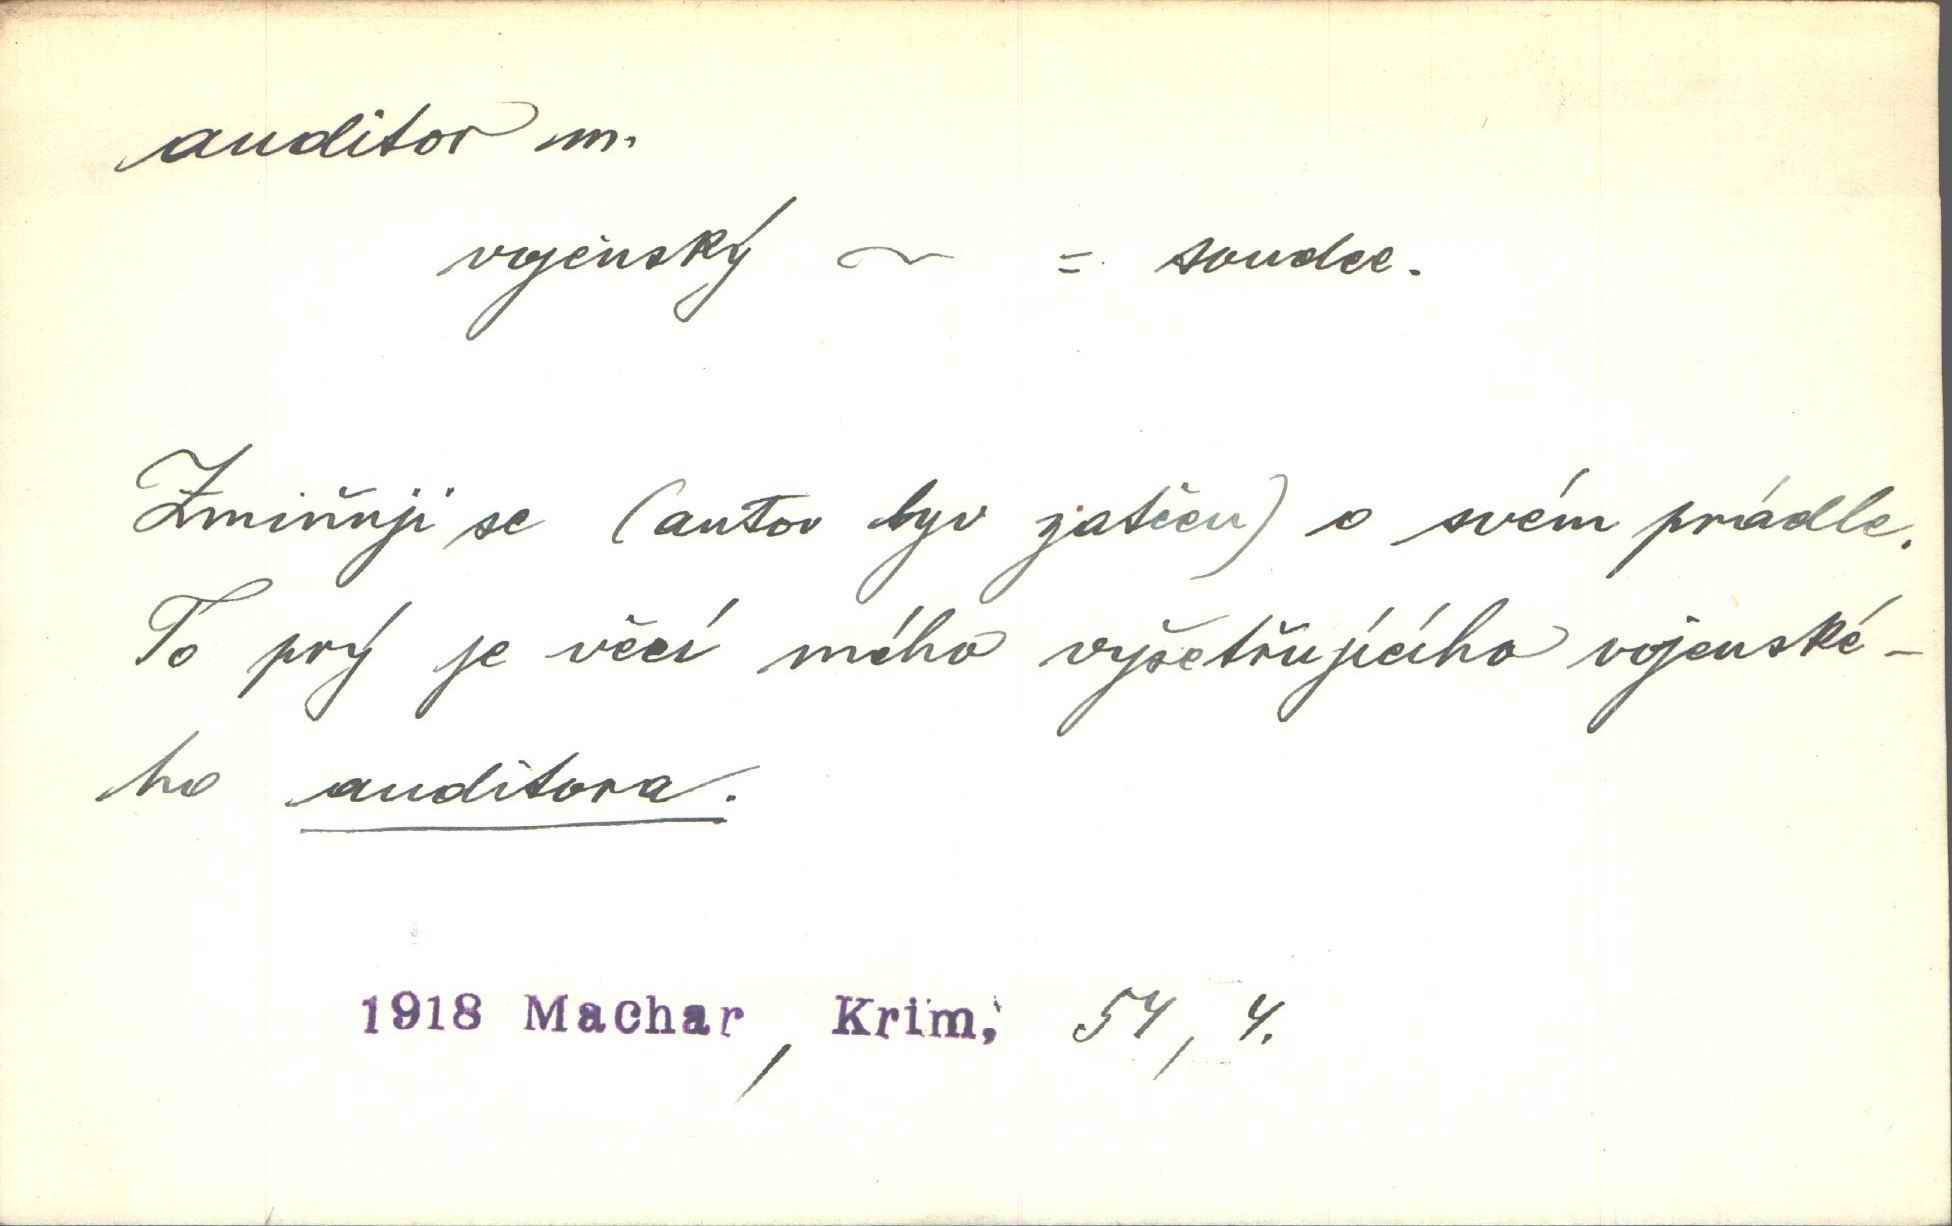 auditor m.
vojenský ~ = soudce.
Zmiňuji se (autor byv zatčen) o svém prádle.
To prý je věcí mého vyšetřujícího vojenské-
ho auditora.
1918 Machar, Krim, 54, 4.